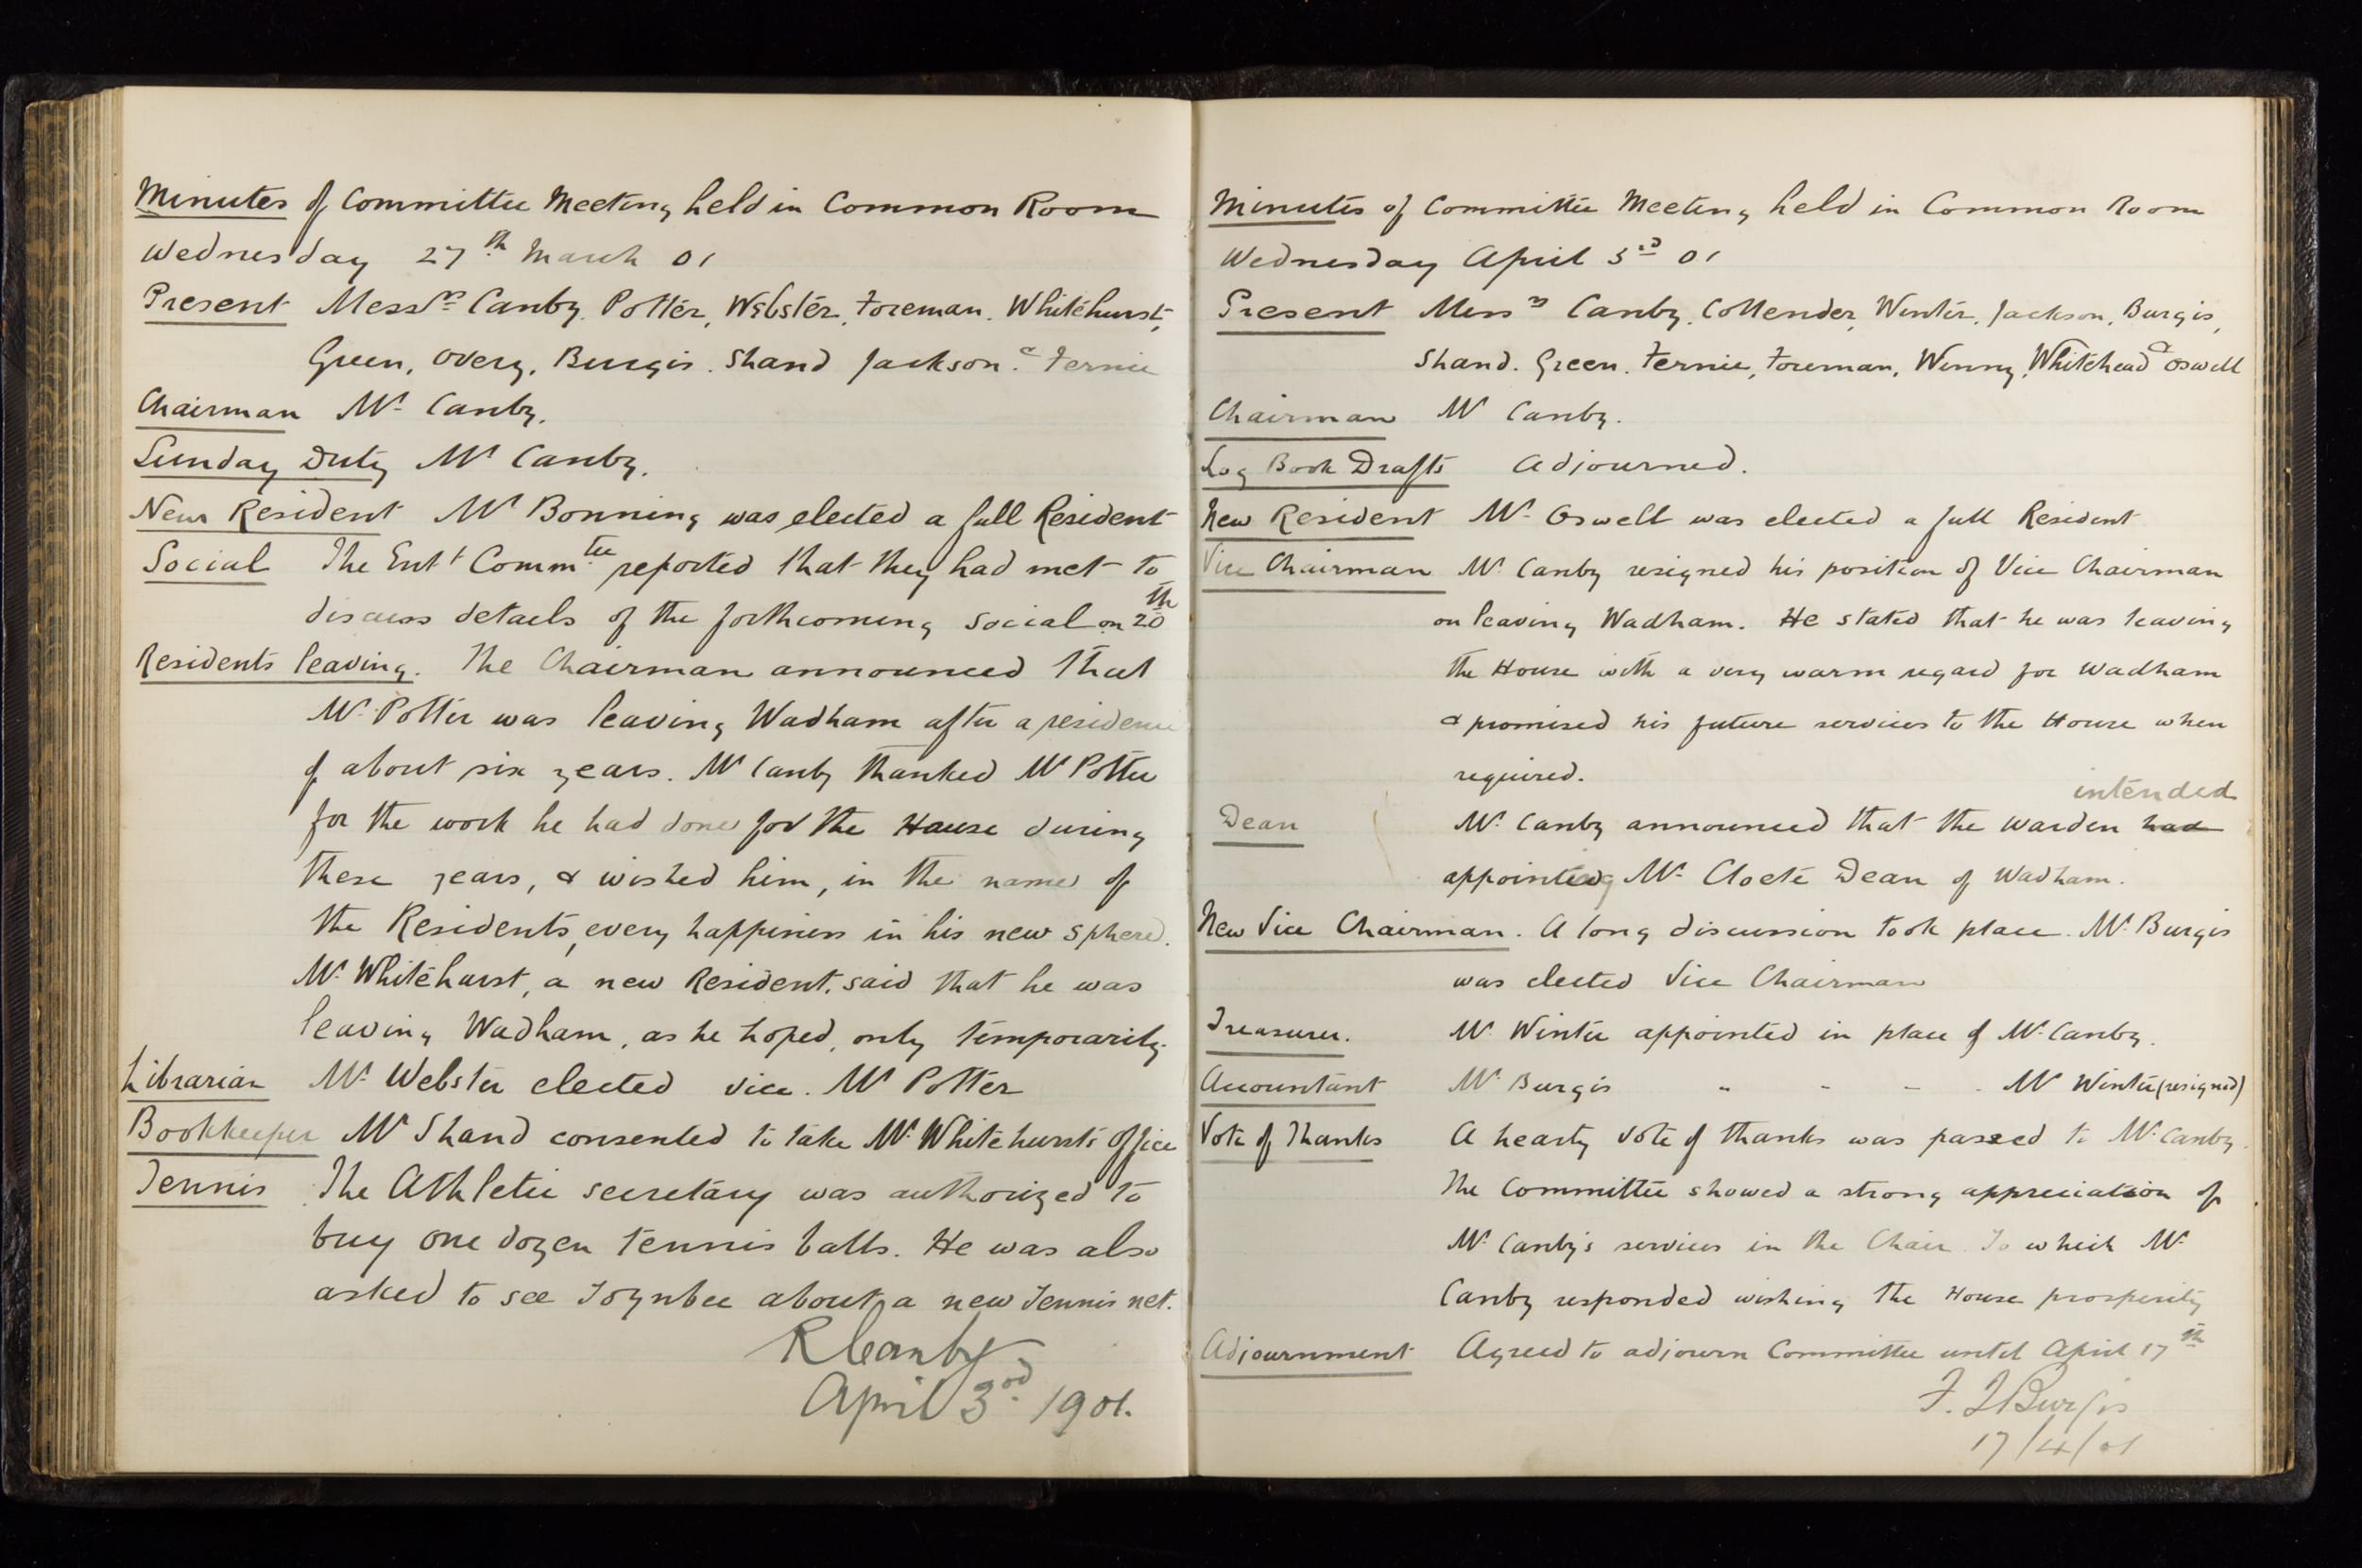 Minutes of Committee Meeting held in Common Room
Wednesday 27th March 01
Present Messrs Canby, Potter, Webster, Foreman, Whitehurst,
Green, Overy, Burgis, Shand Jackson & Fernie
Chairman Mr Canby.
Sunday Duty Mr Canby.
New Resident Mr Bonning was elected a full Resident
Social The Entt Commtee reported that they had met to
discuss details of the forthcoming Social on 20th
Residents leaving. The Chairman announced that
Mr Potter was leaving Wadham after a residence
of about six years. Mr Canby thanked Mr Potter
for the work he had done for the House during
these years, & wished him, in the name of
the Residents, every happiness in his new sphere.
Mr Whitehurst, a new Resident, said that he was
leaving Wadham, as he hoped, only temporarily.
Librarian Mr Webster elected vice. Mr Potter
Bookkeeper Mr Shand consented to take Mr Whitehursts office
Tennis The Athletic secretary was authorized to
buy one dozen tennis balls. He was also
asked to see Toynbee about a new Tennis net.
R Canby
April 3rd 1901.
Minutes of Committee Meeting held in Common Room
Wednesday April 3rd 01
Present Messrs Canby, Collender, Winter, Jackson, Burgis,
Shand. Green. Fernie, Foreman, Winny, Whitehead & Oswell
Chairman Mr Canby.
Log Book Drafts adjourned.
New Resident Mr Oswell was elected a full Resident
Vice Chairman Mr Canby resigned his position of Vice Chairman
on leaving Wadham. He stated that he was leaving
the House with a very warm regard for Wadham
& promised his future services to the House when
required.
intended
Dean Mr Canby announced that the Warden had
appointing Mr Cloete Dean of Wadham.
New Vice Chairman. A long discussion took place. Mr Burgis
was elected Vice Chairman
Treasurer. Mr Winter appointed in place of Mr Canby.
Accountant Mr Burgis " " " " Mr Winter (resigned)
Vote of Thanks A hearty vote of thanks was passed to Mr Canby.
The Committee showed a strong appreciation of
Mr Canby's services in the Chair To which Mr
Canby responded wishing the House prosperity
Adjournment Agreed to adjourn Committee until April 17th
F. J Burgis
17/4/01